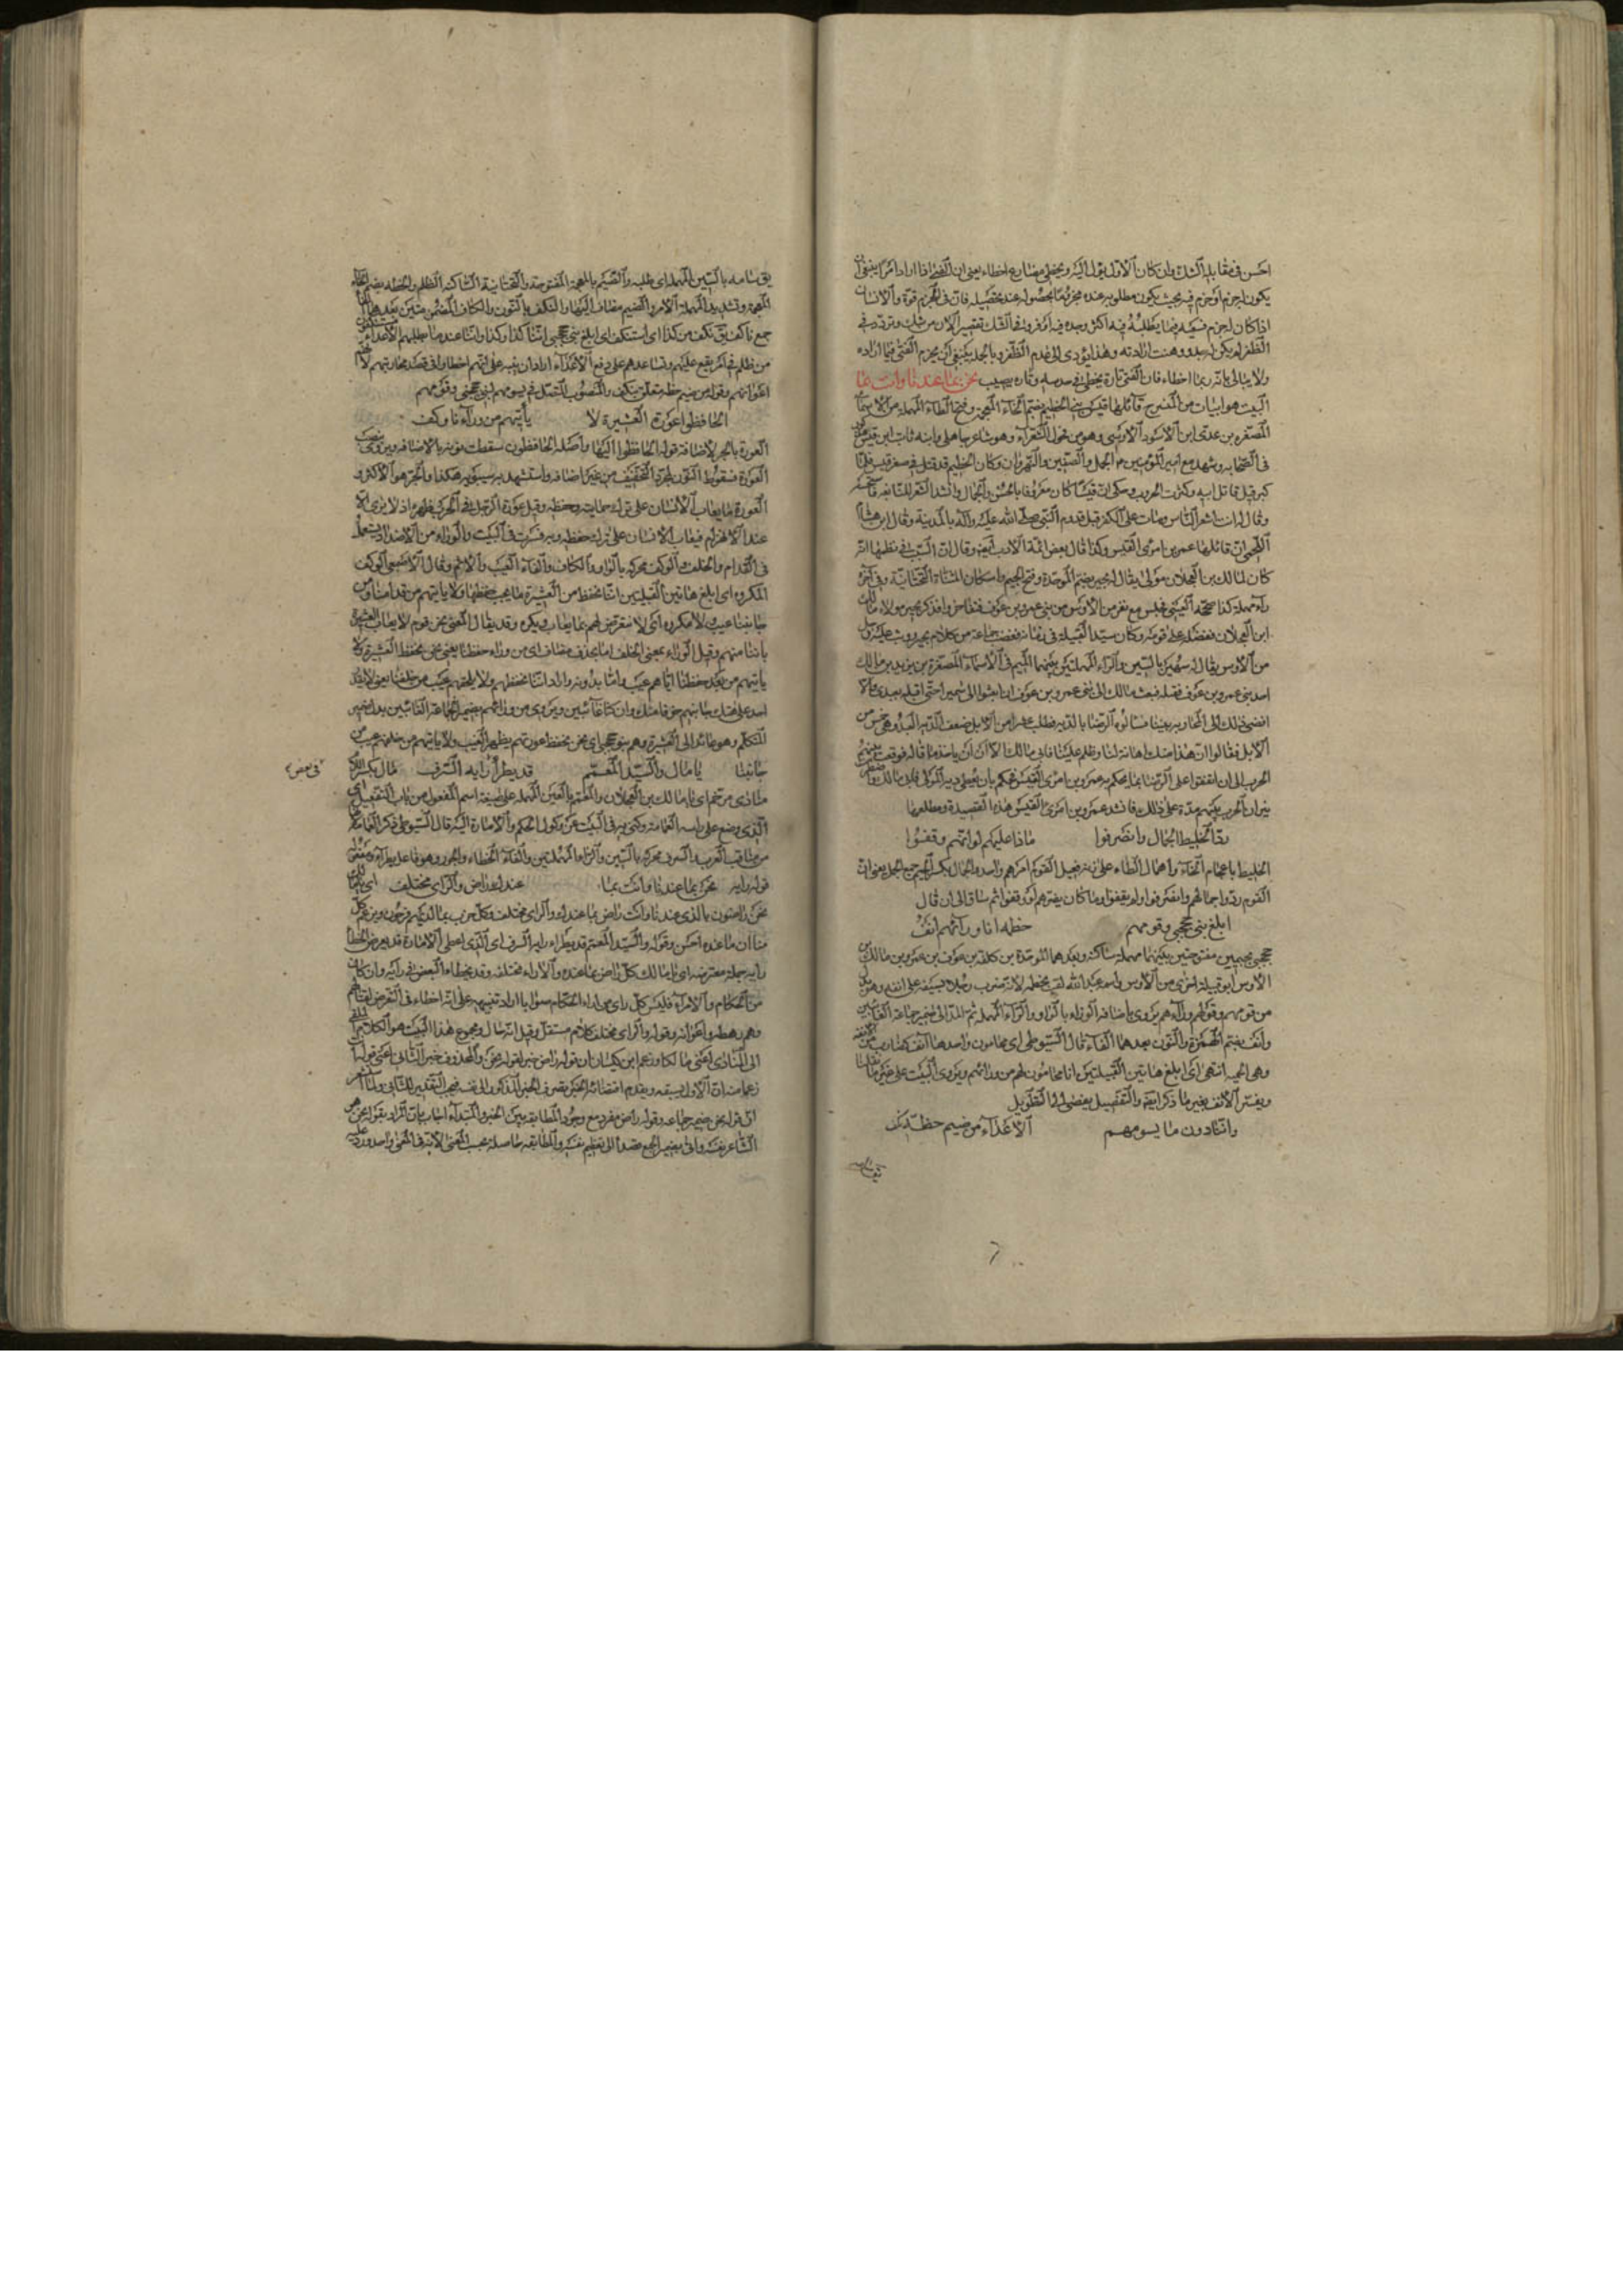 احسن فى مقابلة الشك وان كان الاول يؤل اليه ويخطى مضارع اخطاء يعنى ان الفتى اذا اراد امرا ينبغى ان
يكون له جزم اوجزم فيه بحيث يكون مطلوبه عنده مجزوما بحصوله عند تحصيله فان فى الجزم قوة والانسان
اذا كان له جزم فيما يطلبه فيه اكثر وجده فيه اوفر وفى الشك تقصير الان من شك وتردد فى
الظفر لم يكن له بد ووهنت ارادته وهذا يؤدى الى عدم الظفر وبالجملة ينبغى ان يجزم الفتى فيما اراده
ولا يبالى بانه ربما اخطاء فان الفتى تارة يخطى فى حدسه وتارة يصيب نحن بما عندنا وانت بما
البيت هو ابيات من المنسرح قائلها قيس بن الخطيم بفتح الخاء المعجمة وفتح الطاء المهملة من الاسماء
المصغرة بن عدى ابن الاسود الاوسى وهو من فحول الشعراء وهو شاعر جاهلى وابنه ثابت ابن قيس
فى الصحابة وشهد مع امير المؤمنين ع الجمل والصفين والنهروان وكان الخطيم قد قتل فى صغر قيس فلما
كبر قيل قاتل ابيه وكثرت الحروب وحكى ان قيسا كان معروفا بالحسن والجمال وانشد الشعر للنابغة
وقال له انت اشعر الناس ومات على الكفر قبل قدوم النبى صلى الله عليه وآله بالمدينة وقال ابن هشام
اللخمى ان قائلها عمرو بن امرئ القيس وكذا قال بعض ائمة الادب ايضا وقال ان السبب فى نظمها انه
كان لمالك بن العجلان مولى يقال له بجير بضم الموحدة وفتح الجيم واسكان المثناة التحتانية وفى آخره
راء مهملة كذا صححه العينى فجلس مع نفر من الاوس من بنى عمرو بن عوف فتفاخروا فذكر بجير مولاه مالك
ابن العجلان ففضله على قومه وكان سيد القبيلة فى زمانه فغضب جماعة من كلام بجير ووثب عليه رجل
من الاوس يقال له سمير بالسين والراء المهملتين بينهما الميم فى الاسماء المصغرة بن يزيد بن مالك
احد بنى عمرو بن عوف فقتله فبعث مالك الى بنى عمرو بن عوف ان ابعثوا الى سمير احتى اقتله بعبدى والا
افضى ذلك الى المحاربة بيننا فسالوه الرضا بالدية فطلب عشرا من الابل ضعف الدية العبد وهى خمس من
الابل فقالوا ان هذا منك اهانة لنا وظلم علينا فابى مالك الا ان ياخذ ما قاله فوقعت بينهم
الحرب الى ان اتفقوا على الرضا بما يحكم به عمرو بن امرئ القيس فحكم بان يعطى دية المولى فابى مالك
نيران الحرب بينهم مدة على ذلك فانشد عمرو بن امرئ القيس هذه القصيدة ومطلعها
ردّ الخليط الجمال وانصرفوا ماذا عليهم لو انهم وقفوا
الخليط باعجام الخاء واهمال الطاء على زنة فعيل القوم امرهم واحد والجمال بكسر الجيم جمع الجمل يعنى ان
القوم ردوا جمالهم وانصرفوا ولم يقفوا وما كان يضرهم لو وقفوا ثم ساق الى ان قال
ابلغ بنى جحجبى وقومهم خطمة انا ورائهم انف
جحجبى بجيمين مفتوحتين بينهما مهملة ساكنة وبعدهما الموحدة بن كلفة بن عوف بن عمرو بن مالك بن
الاوس ابو قبيلة اخرى من الاوس واسمه عبد الله لقب بخطمة لانه ضرب رجلا بسيفه على انفه وهو بدل
من قومهم وقولهم وراءهم يروى باضافة الوراء بالواو والراء المهملة ثم المد الى ضمير جماعة الغائبين
وانف بضم الهمزة والنون بعدهما الفاء قال السيوطى اى محامون واحدها آنف كضارب من الانفة
وهى الحمية انتهى اى ابلغ هاتين القبيلتين انا محامون لهم من ورائهم ويروى البيت على غير ما نقلنا
ويفسر الانف بغير ما ذكر ايضا والتفصيل يفضى الى التطويل
واننا دون ما يسومهم الاعداء من ضيم خطة نكف
يق سامه بالسين المهملة اى طلبه والضيم بالمعجمة المفتوحة والتحتانية الساكنة الظلم والخطة بضم الخاء
المعجمة وتشديد المهملة الامر والضيم مضاف اليها والنكف بالنون والكاف المضمومتين بعدهما الفاء
جمع ناكف يق نكف من كذا اى استنكف اى ابلغ بنى جحجبى اننا كذا وكذا واننا عند ما يطلبهم الاعداء مستنكفون
من ظلم فى امر يقع عليهم ونساعدهم على دفع الاعداء اراد ان ينبه على انهم اخطاوا فى قصد محاربتهم لانهم
اعوانهم وقوله من ضيم خطة متعلق بنكف والمنصوب المتصل فى يسومهم لبنى جحجبى وقومهم
الحافظوا عورة العشيرة لا يأتيهم من ورآءنا وكف
العورة بالجر لاضافة قوله الحافظوا اليها واصله الحافظون سقطت نونه بالاضافة ويروى بنصب
العورة فسقوط النون لمجرد التخفيف من غير اضافة واستشهد به سيبويه هكذا والجر هو الاكثر و
العورة ما يعاب الانسان على ترك حمايته وحفظه وقيل عورة الرجل فى الحرب ظهره اذ لا يرى الا
عند الانهزام فيعاب الانسان على ترك حفظه وبه فسرت فى البيت والوراء من الاضداد يستعمل
فى القدام والخلف والوكف محركة بالواو والكاف والفاء العيب والاثم وقال الاصمعى الوكف
المكروه اى ابلغ هاتين القبيلتين اننا نحفظ من العشيرة ما يجب حفظها ولا ياتيهم من قدامنا ومن
جانبنا عيب ولا مكروه اى لا نتعرض لهم بما يعاب ويكره وقد يقال المعنى نحن قوم لا يعاب العشيرة
باننا منهم وقيل الوراء بمعنى الخلف اما بحذف مضاف اى من وراء حفظنا يعنى نحن نحفظ العشيرة ولا
ياتيهم من بعد حفظنا اياهم عيب واما بدونه واراد اننا نحفظهم ولا يلحقهم عيب من خلفنا يعنى لا يقدر
احد على هتك جانبهم خوفا منك وان كنا غائبين ويروى من ورائهم بضمير الجماعة الغائبين بدل ضمير
المتكلم وهو عائد الى العشيرة وهم بنو جحجبى اى نحن نحفظ عورتهم بظهر الغيب ولا ياتيهم من خلفهم عيب من
جانبنا يا مال والسيد المعمّم قد يطرأ رايه السّرف مال بكسر اللام
منادى مرخم اى يا مالك بن العجلان والمعمم بالعين المهملة على صيغة اسم المفعول من باب التفعيل اى
الذى وضع على راسه العمامة وكنى به فى البيت عن وكول الحكم والامارة اليه قال السيوطى ذكر العمامة
من مناقب العرب السرف محركة بالسين والراء المهملتين والفاء الخطاء والجور وهو فاعل يطرأ ومفعوله
قوله رايه نحن بما عندنا وانت بما عندك راض والراى مختلف اى يا مالك
نحن راضون بالذى عندنا وانت راض بما عندك والراى مختلف وكل حزب بما لديهم فرحون ويزعم كل
منا ان ما عنده احسن وقوله والسيد المعمم قد يطراء رايه السرف اى الذى اعطى الامارة قد يعرض الخطأ
رأيه جملة معترضة اى يا مالك كل راض بما عنده والاراء مختلفة وقد يخطاء البعض فى رأيه وان كان
من الحكام والامراء فليس كل راى من اراء الحكام سؤابا اراد تنبيهه على انه اخطاء فى التعرض لقتالهم
وهم رهطه واعوانه وقوله والراى مختلف كلام مستقل وقيل انه حال ومجموع هذا البيت هو الكلام الملقى
الى المنادى اعنى مالكا وزعم ابن كيسان ان قوله راض خبر لقوله نحن والمحذوف خبر الثانى اعنى قوله انت
زعما منه ان الاول يسبقه ويقدم اقتضائه الخبر يصرف الخبر المذكور الى نفسه فيجب التقدير للثانى ولما استشعر
ان قوله نحن ضمير جماعة وقوله راض مفرد مع وجوب المطابقة بين الخبر والمبتداء اجاب بان المراد بقوله نحن هو
الشاعر نفسه واتى بضمير الجمع قصدا الى تعظيم نفسه والمطابقة حاصلة بحسب المعنى لانه فى المعنى واحد ورد عليه